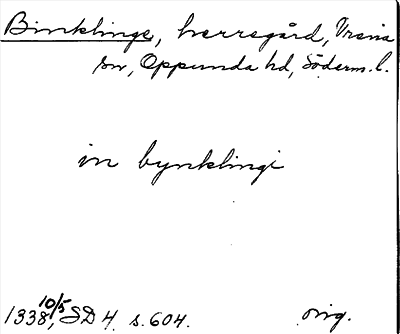 Binklinge, herregård, Vrena
sn, Oppunda hd, Söderm. l.
in bynklingi
1338 10/5, SD 4 s. 604. orig.